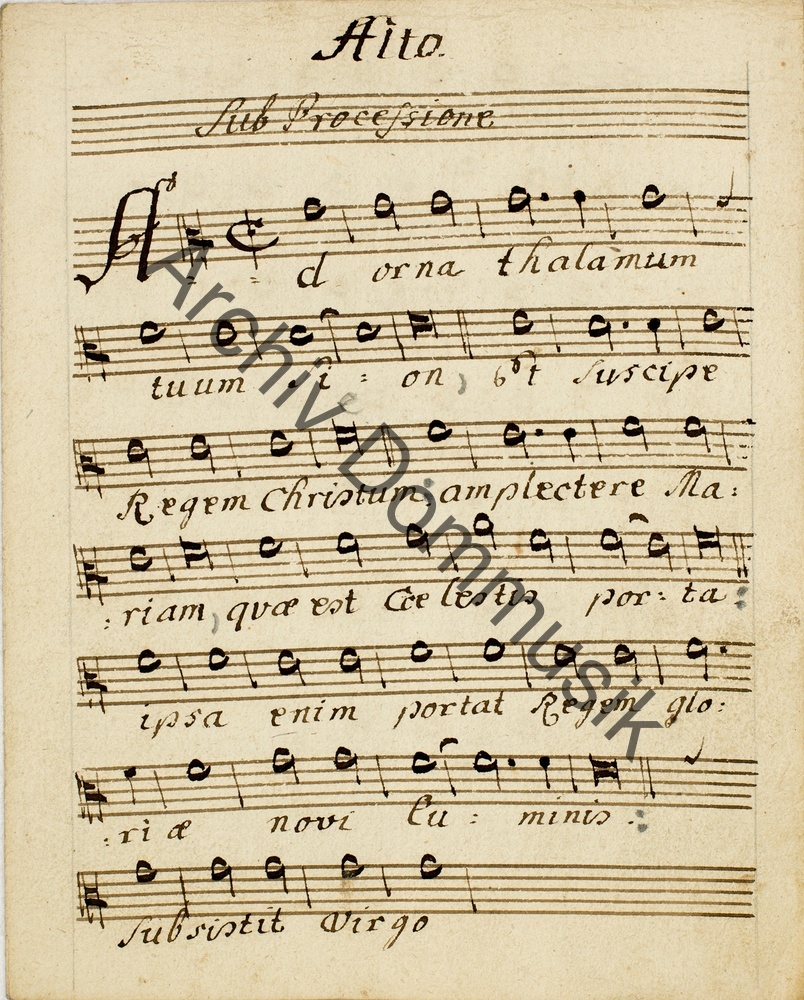 Alto.
Sub Processione
A = = d orna thalamum
tuum Si = on, et Suscipe
Regem Christum, amplectere Ma:
:riam, quæ est Cœlestis por: ta:
ipsa enim portat Regem glo:
:riæ novi lu: minis:
Subsistit Virgo
Archiv Dommusik